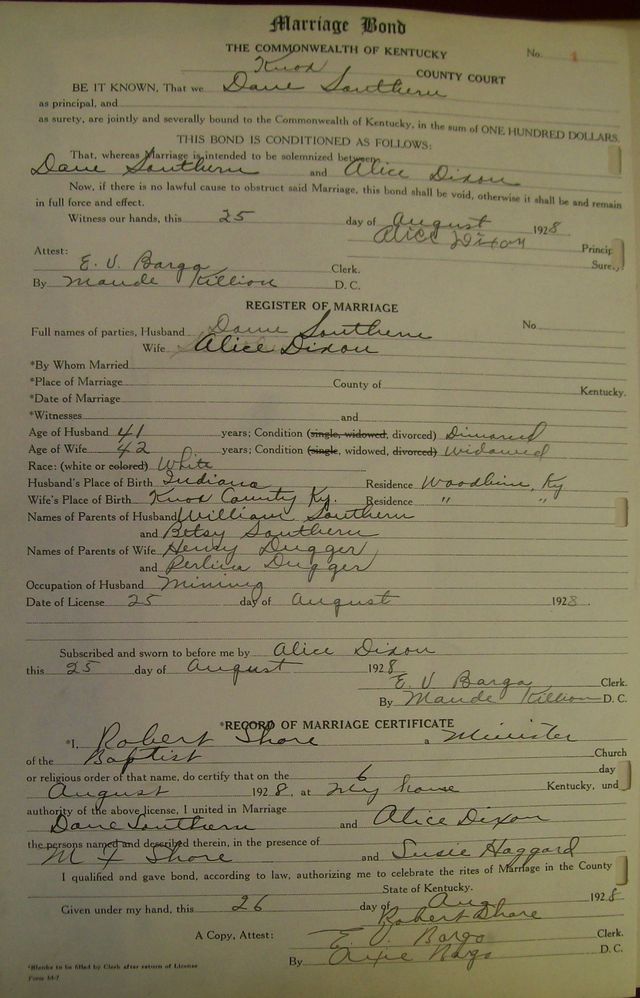 Marriage Bond
THE COMMONWEALTH OF KENTUCKY No. 1
Knox COUNTY COURT
BE IT KNOWN, That we Dave Southern
as principal, and
as surety, are jointly and severally bound to the Commonwealth of Kentucky, in the sum of ONE HUNDRED DOLLARS.
THIS BOND IS CONDITIONED AS FOLLOWS:
That, whereas Marriage is intended to be solemnized between
Dave Southern and Alice Dixon
Now, if there is no lawful cause to obstruct said Marriage, this bond shall be void, otherwise it shall be and remain
in full force and effect.
Witness our hands, this 25 day of August 1928
Alice Dixon Princip
Attest: Sure
E. V. Barga Clerk.
By Maude Killion D. C.
REGISTER OF MARRIAGE
Full names of parties, Husband Dave Southern No
Wife Alice Dixon
*By Whom Married
*Place of Marriage County of Kentucky.
*Date of Marriage
*Witnesses and
Age of Husband 41 years; Condition (single, widowed, divorced) Divorced
Age of Wife 42 years; Condition (single, widowed, divorced) Widowed
Race: (white or colored) White
Husband's Place of Birth Indiana Residence Woodbine, Ky
Wife's Place of Birth Knox County Ky. Residence " "
Names of Parents of Husband William Southern
and Betsy Southern
Names of Parents of Wife Henry Dugger
and Perlina Dugger
Occupation of Husband Mining
Date of License 25 day of August 1928.
Subscribed and sworn to before me by Alice Dixon
this 25 day of August 1928
E. V Barga Clerk.
By Maude Killion D. C.
*RECORD OF MARRIAGE CERTIFICATE
*I, Robert Shore a Minister
of the Baptist Church
or religious order of that name, do certify that on the 6 day
August 1928, at My house Kentucky, und
authority of the above license, I united in Marriage
Dave Southern and Alice Dixon
the persons named and described therein, in the presence of
M F Shore and Susie Haggard
I qualified and gave bond, according to law, authorizing me to celebrate the rites of Marriage in the County
State of Kentucky.
Given under my hand, this 26 day of Aug 1928
Robert Shore
A Copy, Attest: E. V. Bargo Clerk.
By Bargo D. C.
*Blanks to be filled by Clerk after return of License
Form M-7